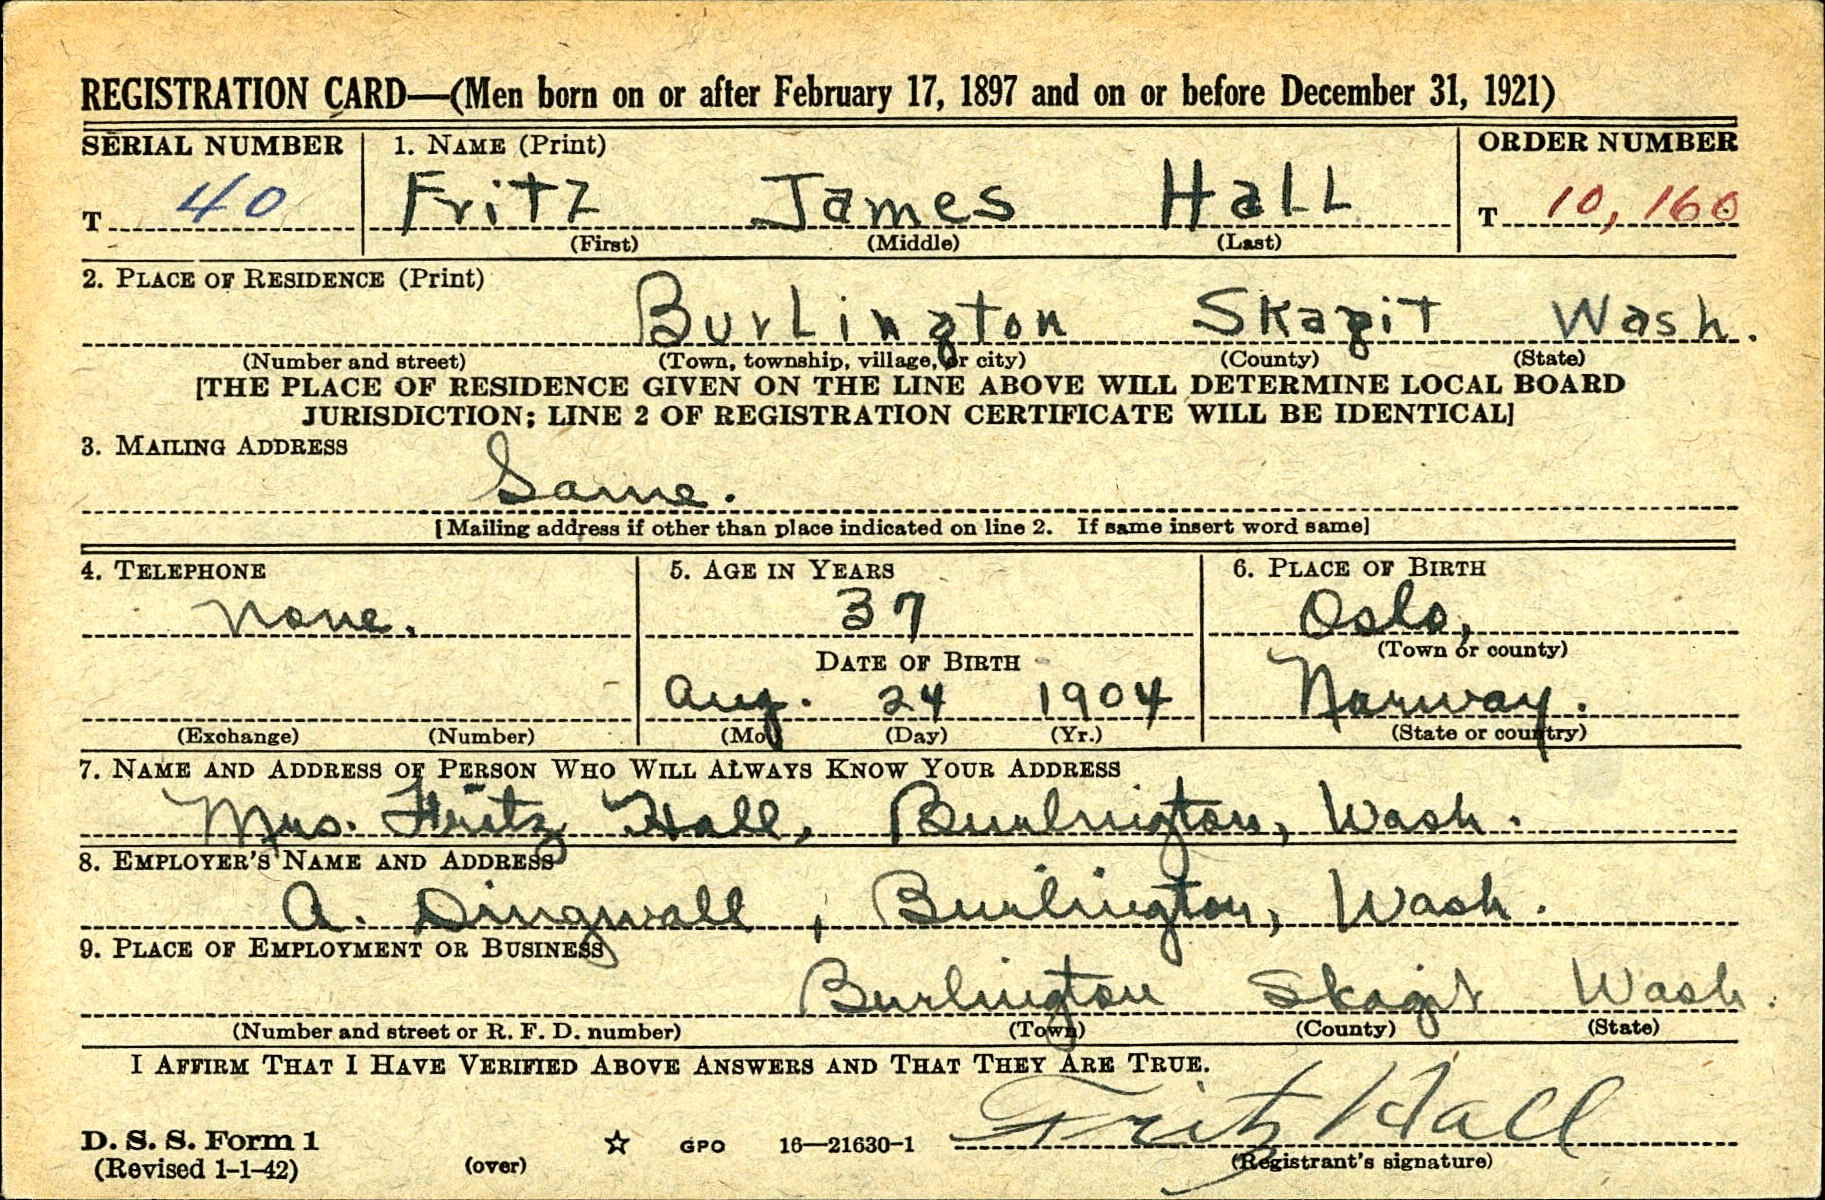 REGISTRATION CARD—(Men born on or after February 17, 1897 and on or before December 31, 1921)
SERIAL NUMBER 1. NAME (Print) ORDER NUMBER
T 40 Fritz James Hall T 10,160
(First) (Middle) (Last)
2. PLACE OF RESIDENCE (Print)
Burlington Skagit Wash.
(Number and street) (Town, township, village, or city) (County) (State)
[THE PLACE OF RESIDENCE GIVEN ON THE LINE ABOVE WILL DETERMINE LOCAL BOARD
JURISDICTION; LINE 2 OF REGISTRATION CERTIFICATE WILL BE IDENTICAL]
3. MAILING ADDRESS
Same.
[Mailing address if other than place indicated on line 2. If same insert word same]
4. TELEPHONE 5. AGE IN YEARS 6. PLACE OF BIRTH
None. 37 Oslo,
DATE OF BIRTH (Town or county)
Aug. 24 1904 Norway.
(Exchange) (Number) (Mo.) (Day) (Yr.) (State or country)
7. NAME AND ADDRESS OF PERSON WHO WILL ALWAYS KNOW YOUR ADDRESS
Mrs. Fritz Hall, Burlington, Wash.
8. EMPLOYER'S NAME AND ADDRESS
A. Dingwall, Burlington, Wash.
9. PLACE OF EMPLOYMENT OR BUSINESS
Burlington Skagit Wash.
(Number and street or R. F. D. number) (Town) (County) (State)
I AFFIRM THAT I HAVE VERIFIED ABOVE ANSWERS AND THAT THEY ARE TRUE.
Fritz Hall
D. S. S. Form 1 GPO 16—21630-1
(Revised 1-1-42) (over) (Registrant's signature)